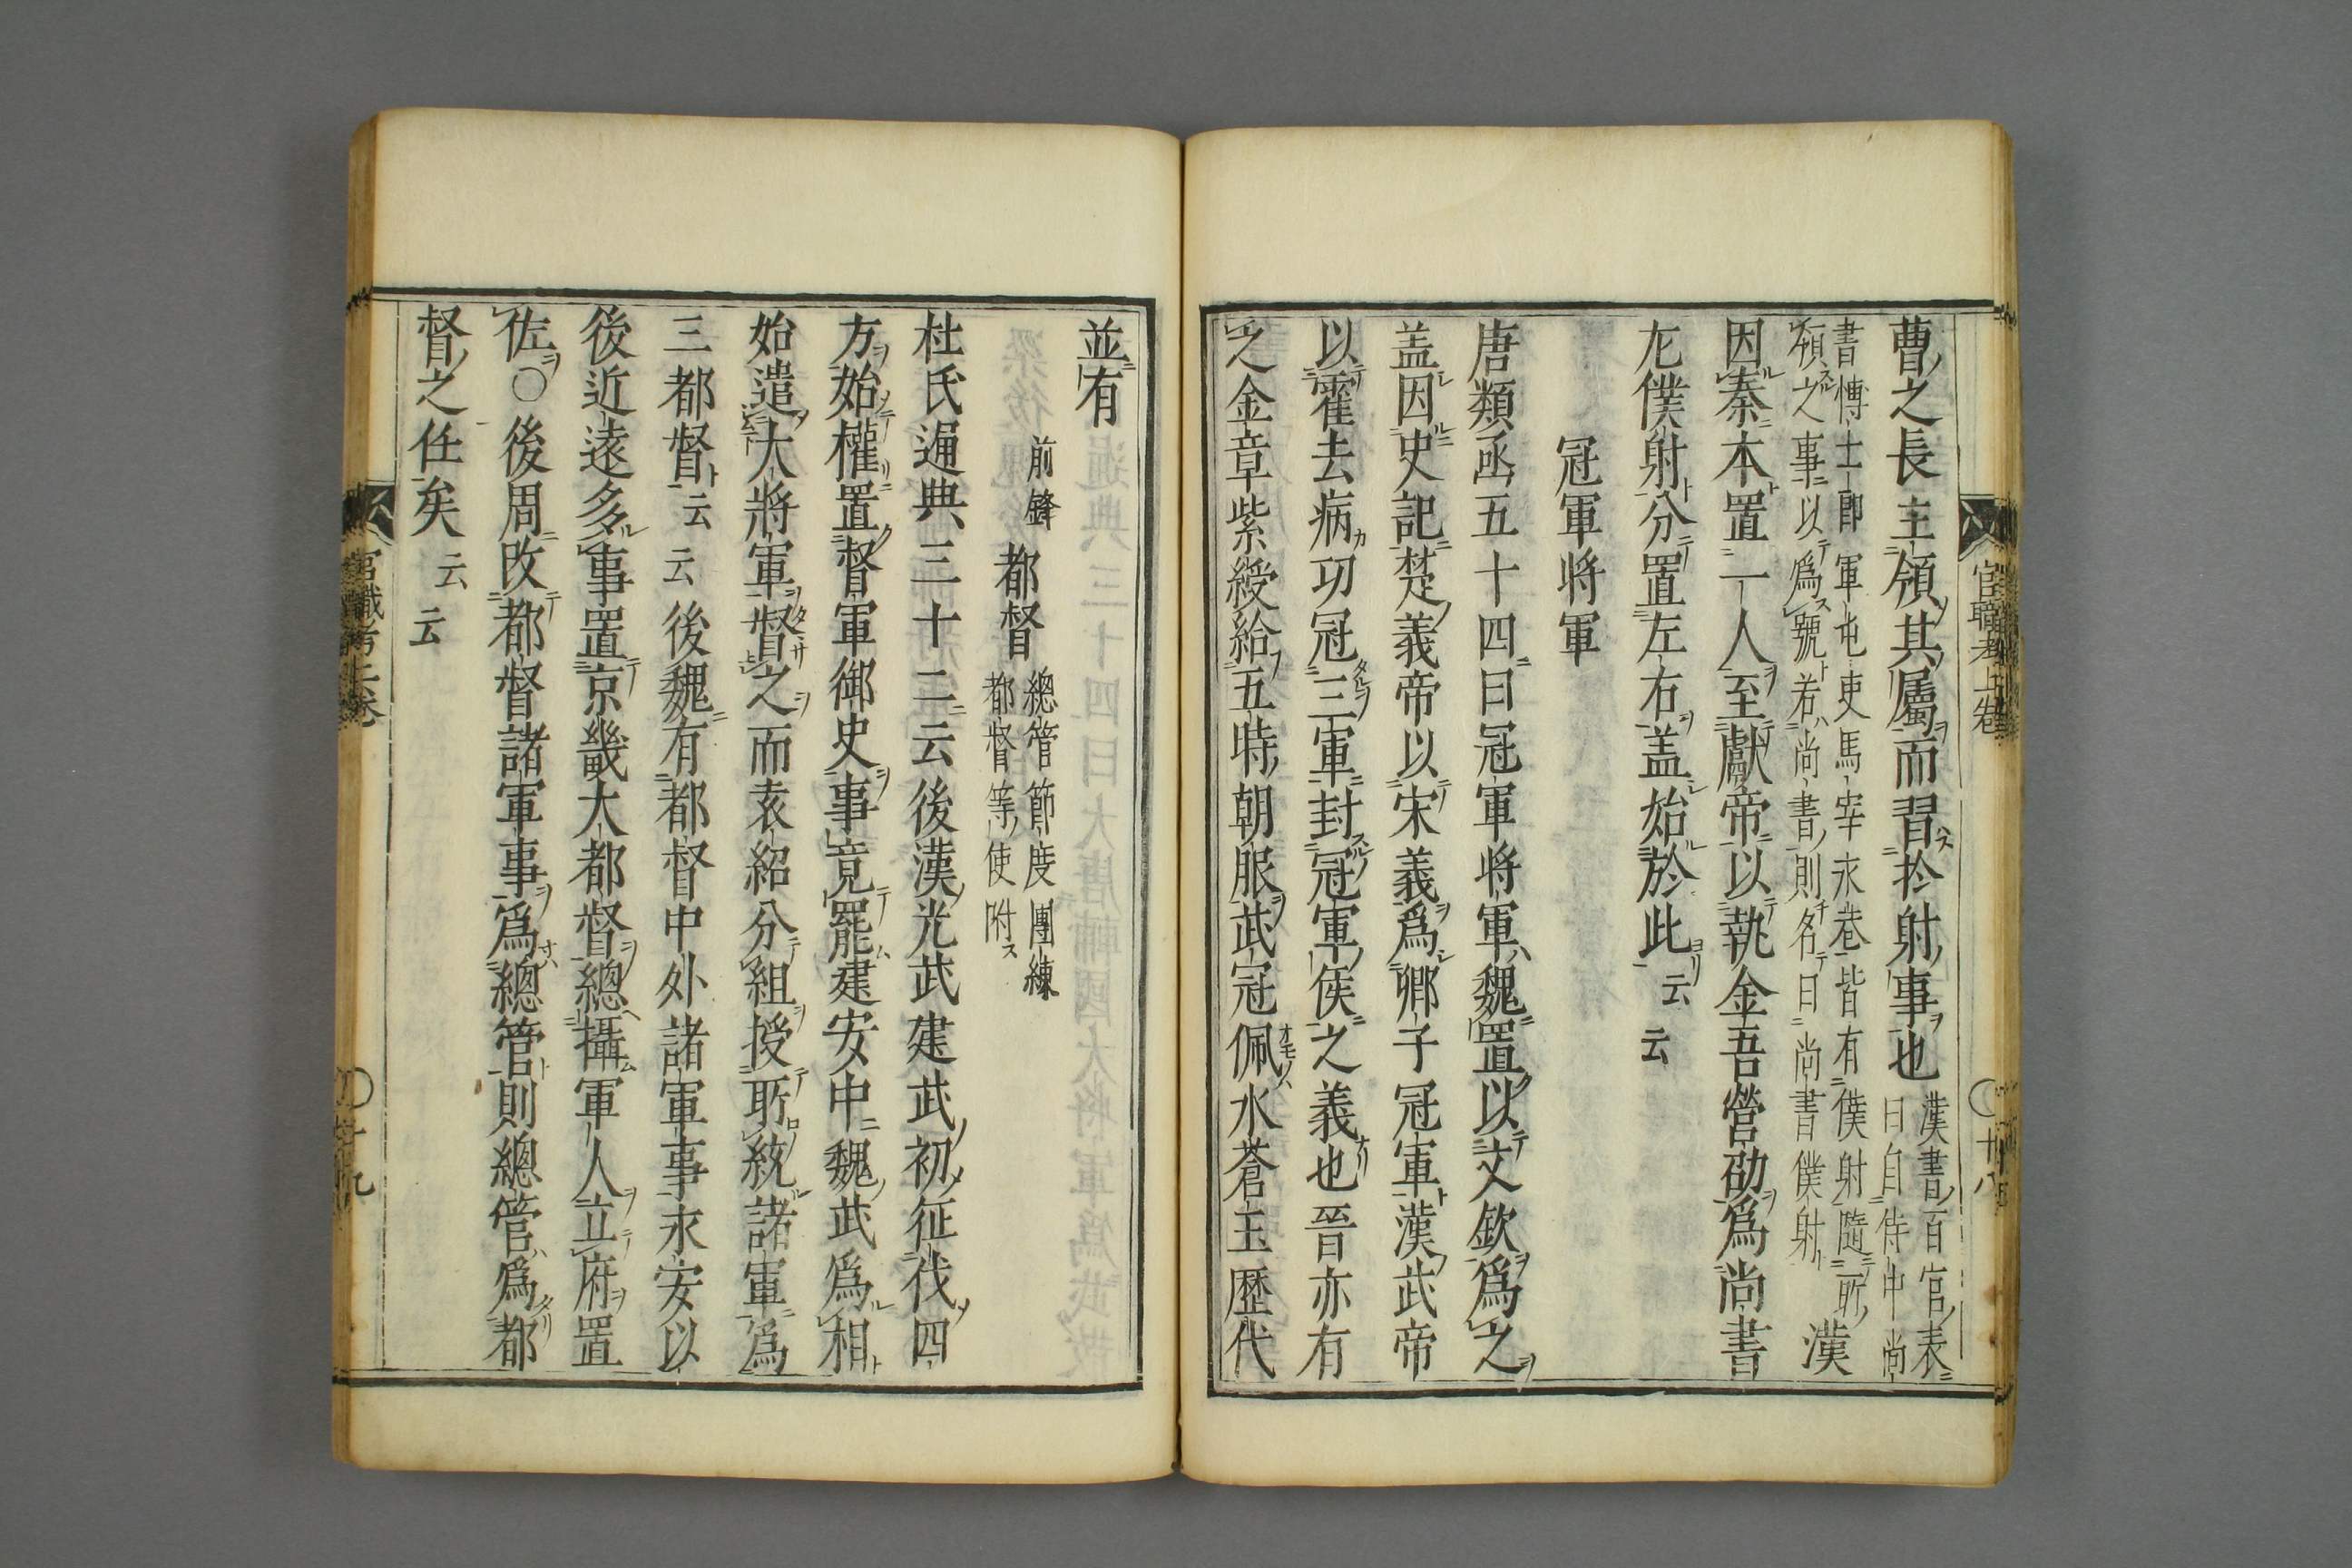 曹之長主領其屬而習於射事也漢書百官表
曰自侍中尚
書博士郎軍屯吏馬宰永巷皆有僕射隨所
領之事以爲號若尚書則名曰尚書僕射漢
因秦本置一人至獻帝以執金吾營劭爲尚書
左僕射分置左右盖始於此云云
冠軍将軍
唐類函五十四曰冠軍将軍魏置以文欽爲之
盖因史記楚義帝以宋義爲卿子冠軍漢武帝
以霍去病功冠三軍封冠軍侯之義也晉亦有
之金章紫綬給五時朝服武冠佩水蒼玉歷代
官職考上卷
〇十八
並有
前鋒都督總管節度團練
都督等使附ス
杜氏通典三十二云後漢光武建武初征伐四
方始權置督軍御史事竟罷建安中魏武爲相
始遣大將軍督之而袁紹分組授所統諸軍爲
三都督云云後魏有都督中外諸軍事永安以
後近遠多事置京畿大都督總攝軍人立府置
佐〇後周改都督諸軍事爲總管則總管爲都
督之任矣云云
官職考上卷
〇十九